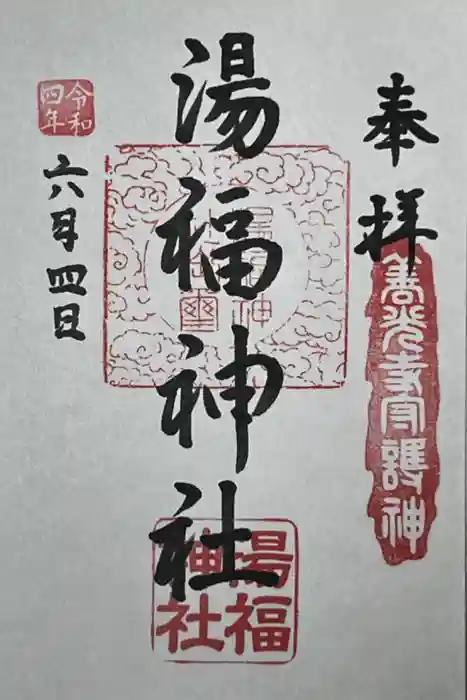 奉拝
善光寺守護神
湯福神社
湯福
神社
令和
四年
六月四日